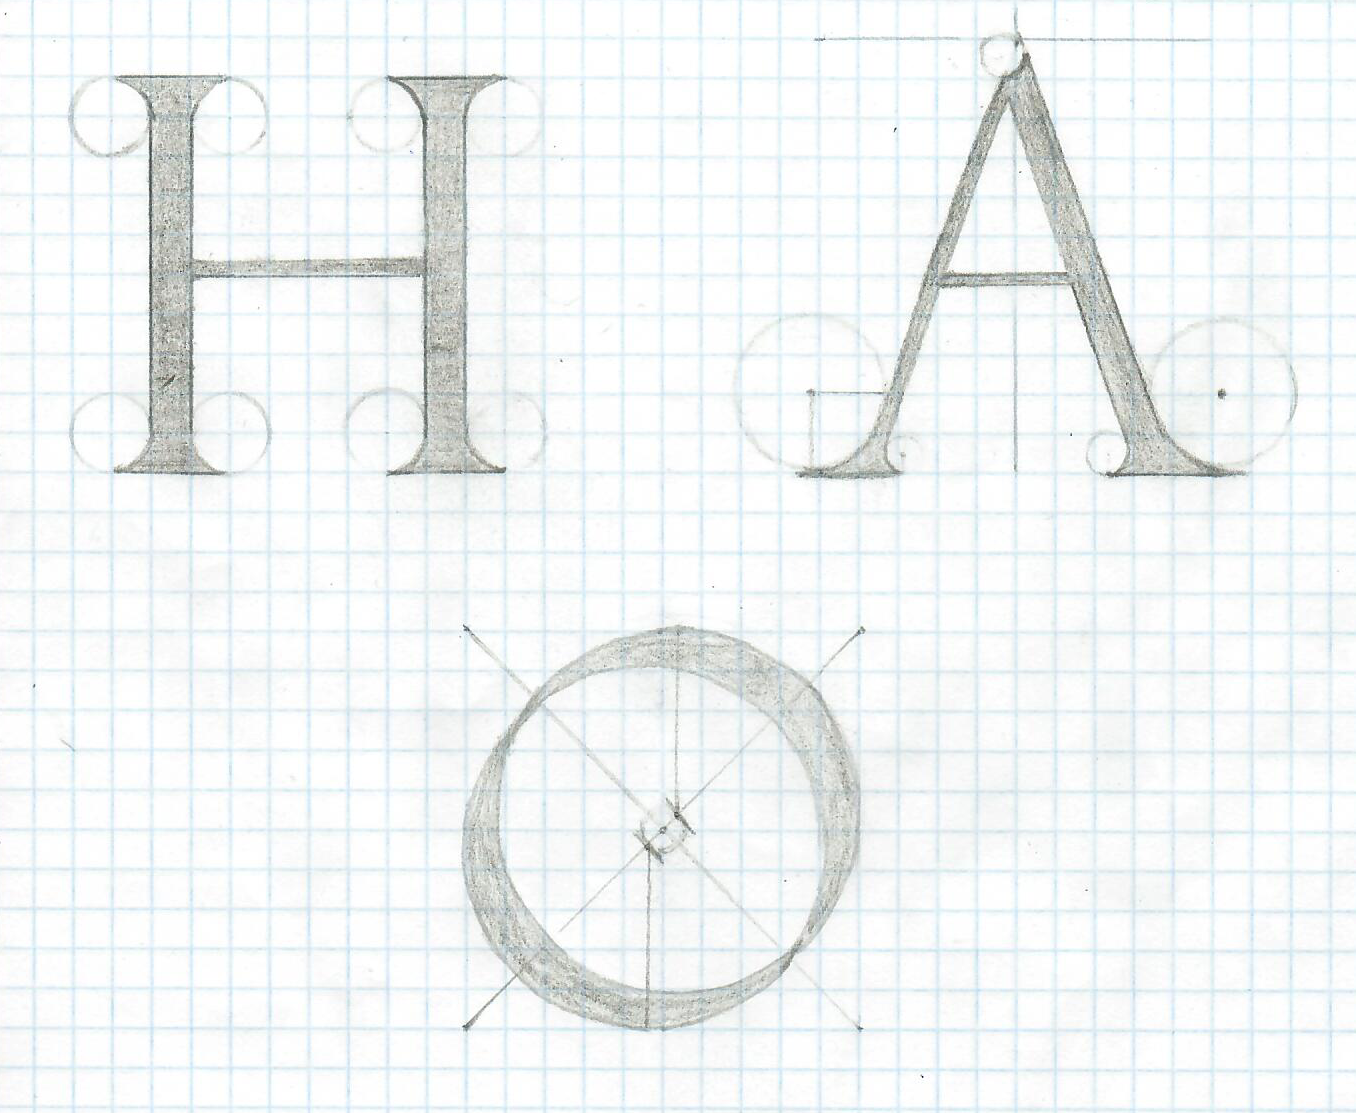 H A
O